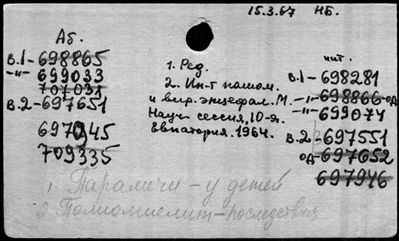 15.3.67 НБ.
Аб.
в.1-698865
-"- 699033
707031
в.2-697651
697945
709335
1. Ред.
2. Ин-т полиом.
и вир. энцефал. М.
Науч. сессия, 10-я.
Евпатория. 1964.
чит.
в.1-698281
-"- 698866 од
-"- 699074
в.2-697551
од-697652
697946
1. Параличи - у детей
2. Полиомиелит - последствия